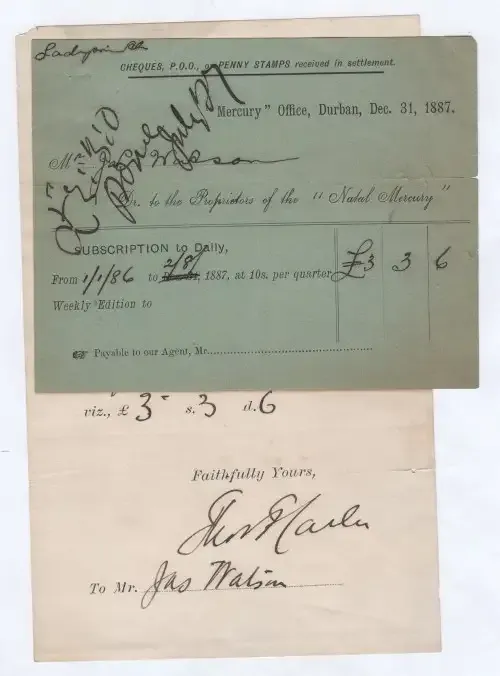 CHEQUES, P.O.O., or PENNY STAMPS received in settlement.
Mercury" Office, Durban, Dec. 31, 1887.
Mr. Jas Watson
Dr. to the Proprietors of the "Natal Mercury"
SUBSCRIPTION to Daily,
From 1/1/86 to 2/8/ 1887, at 10s. per quarter £3 3 6
Weekly Edition to
Payable to our Agent, Mr.
viz., £ 3 s. 3 d. 6
Faithfully Yours,
To Mr. Jas Watson